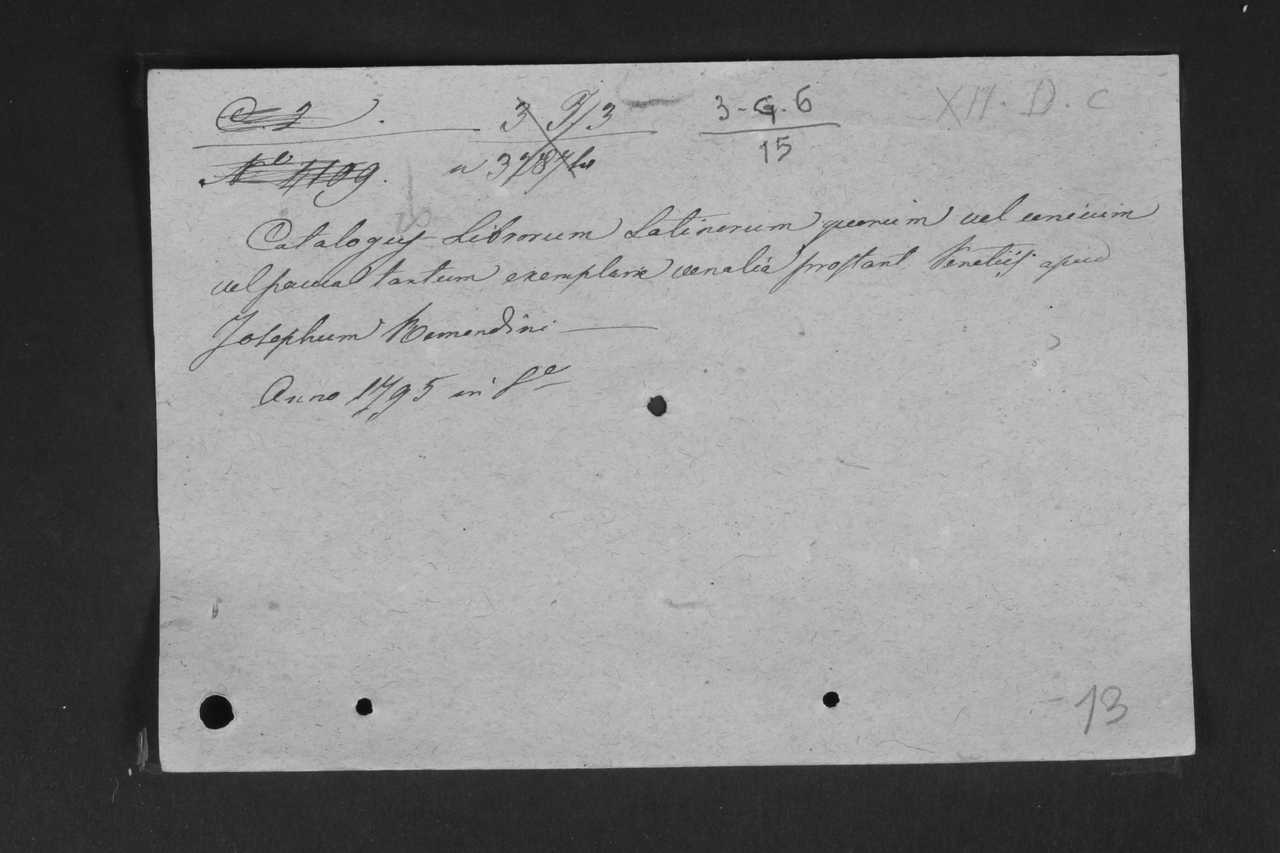 C. 2. 3 T/3 3-G.6 XII. D. c
Nº 4109. a 3787 15
Catalogus Librorum Latinorum quorum vel unicum
vel pauca tantum exemplaria venalia prostant Venetiis apud
Josephum Remondini
Anno 1795 in 8º
13